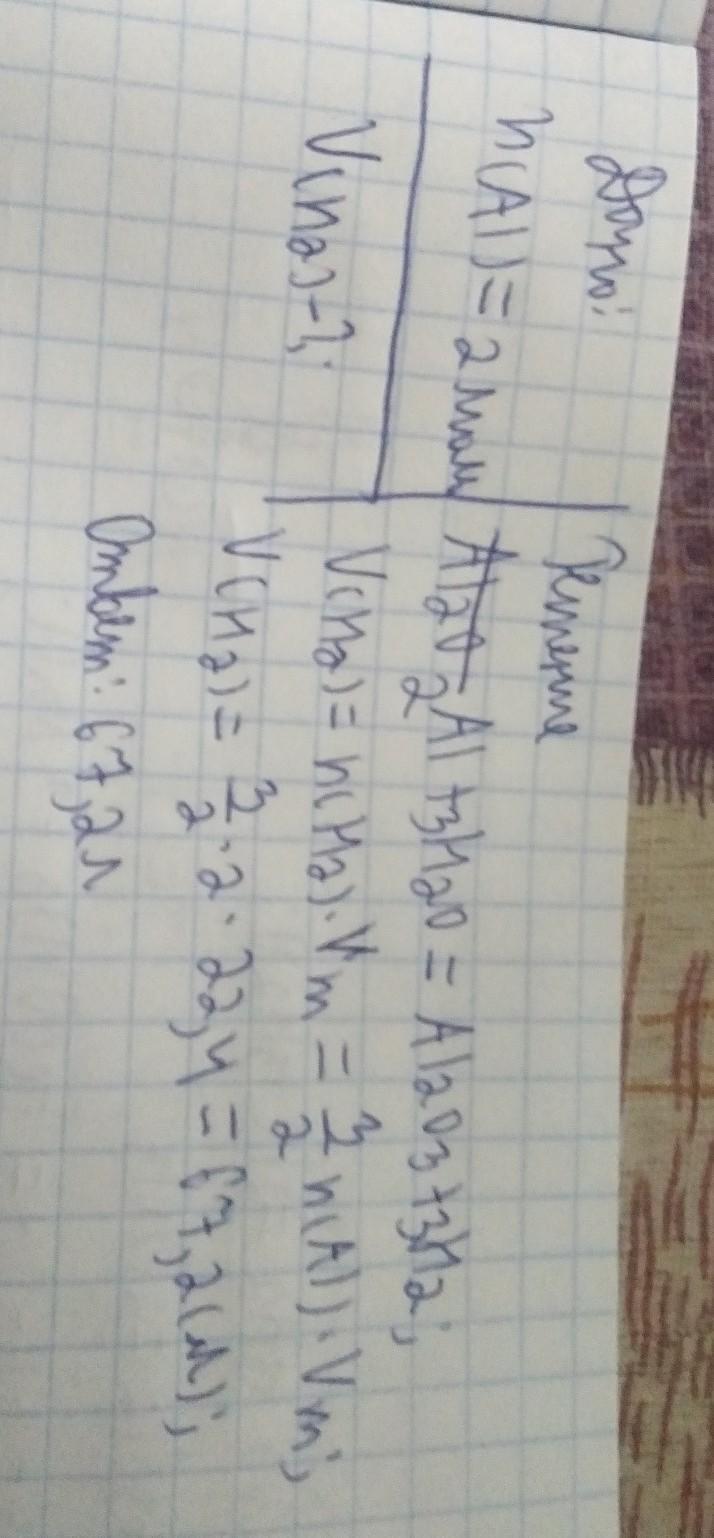 Дано:
n(Al) = 2 моль
V(H2)-?;
Решение
Al2O 2Al + 3H2O = Al2O3 + 3H2;
V(H2) = n(H2) · Vm = 3/2 n(Al) · Vm;
V(H2) = 3/2 · 2 · 22,4 = 67,2(л);
Ответ: 67,2л